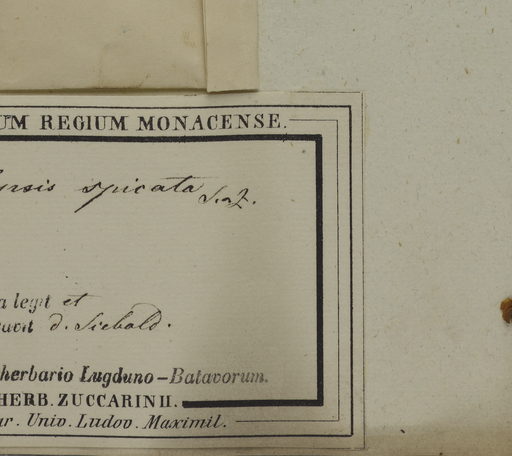 UM REGIUM MONACENSE.
ppsis spicata S. et Z.
a legit et
cavit d. Siebold.
herbario Lugduno-Batavorum.
HERB. ZUCCARINII.
ar. Univ. Ludov. Maximil.